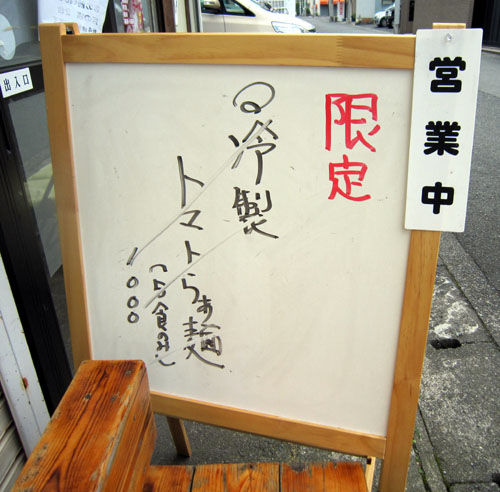 営業中
限定
冷製
トマトらぁ麺
(15食のみ)
1000
出入口